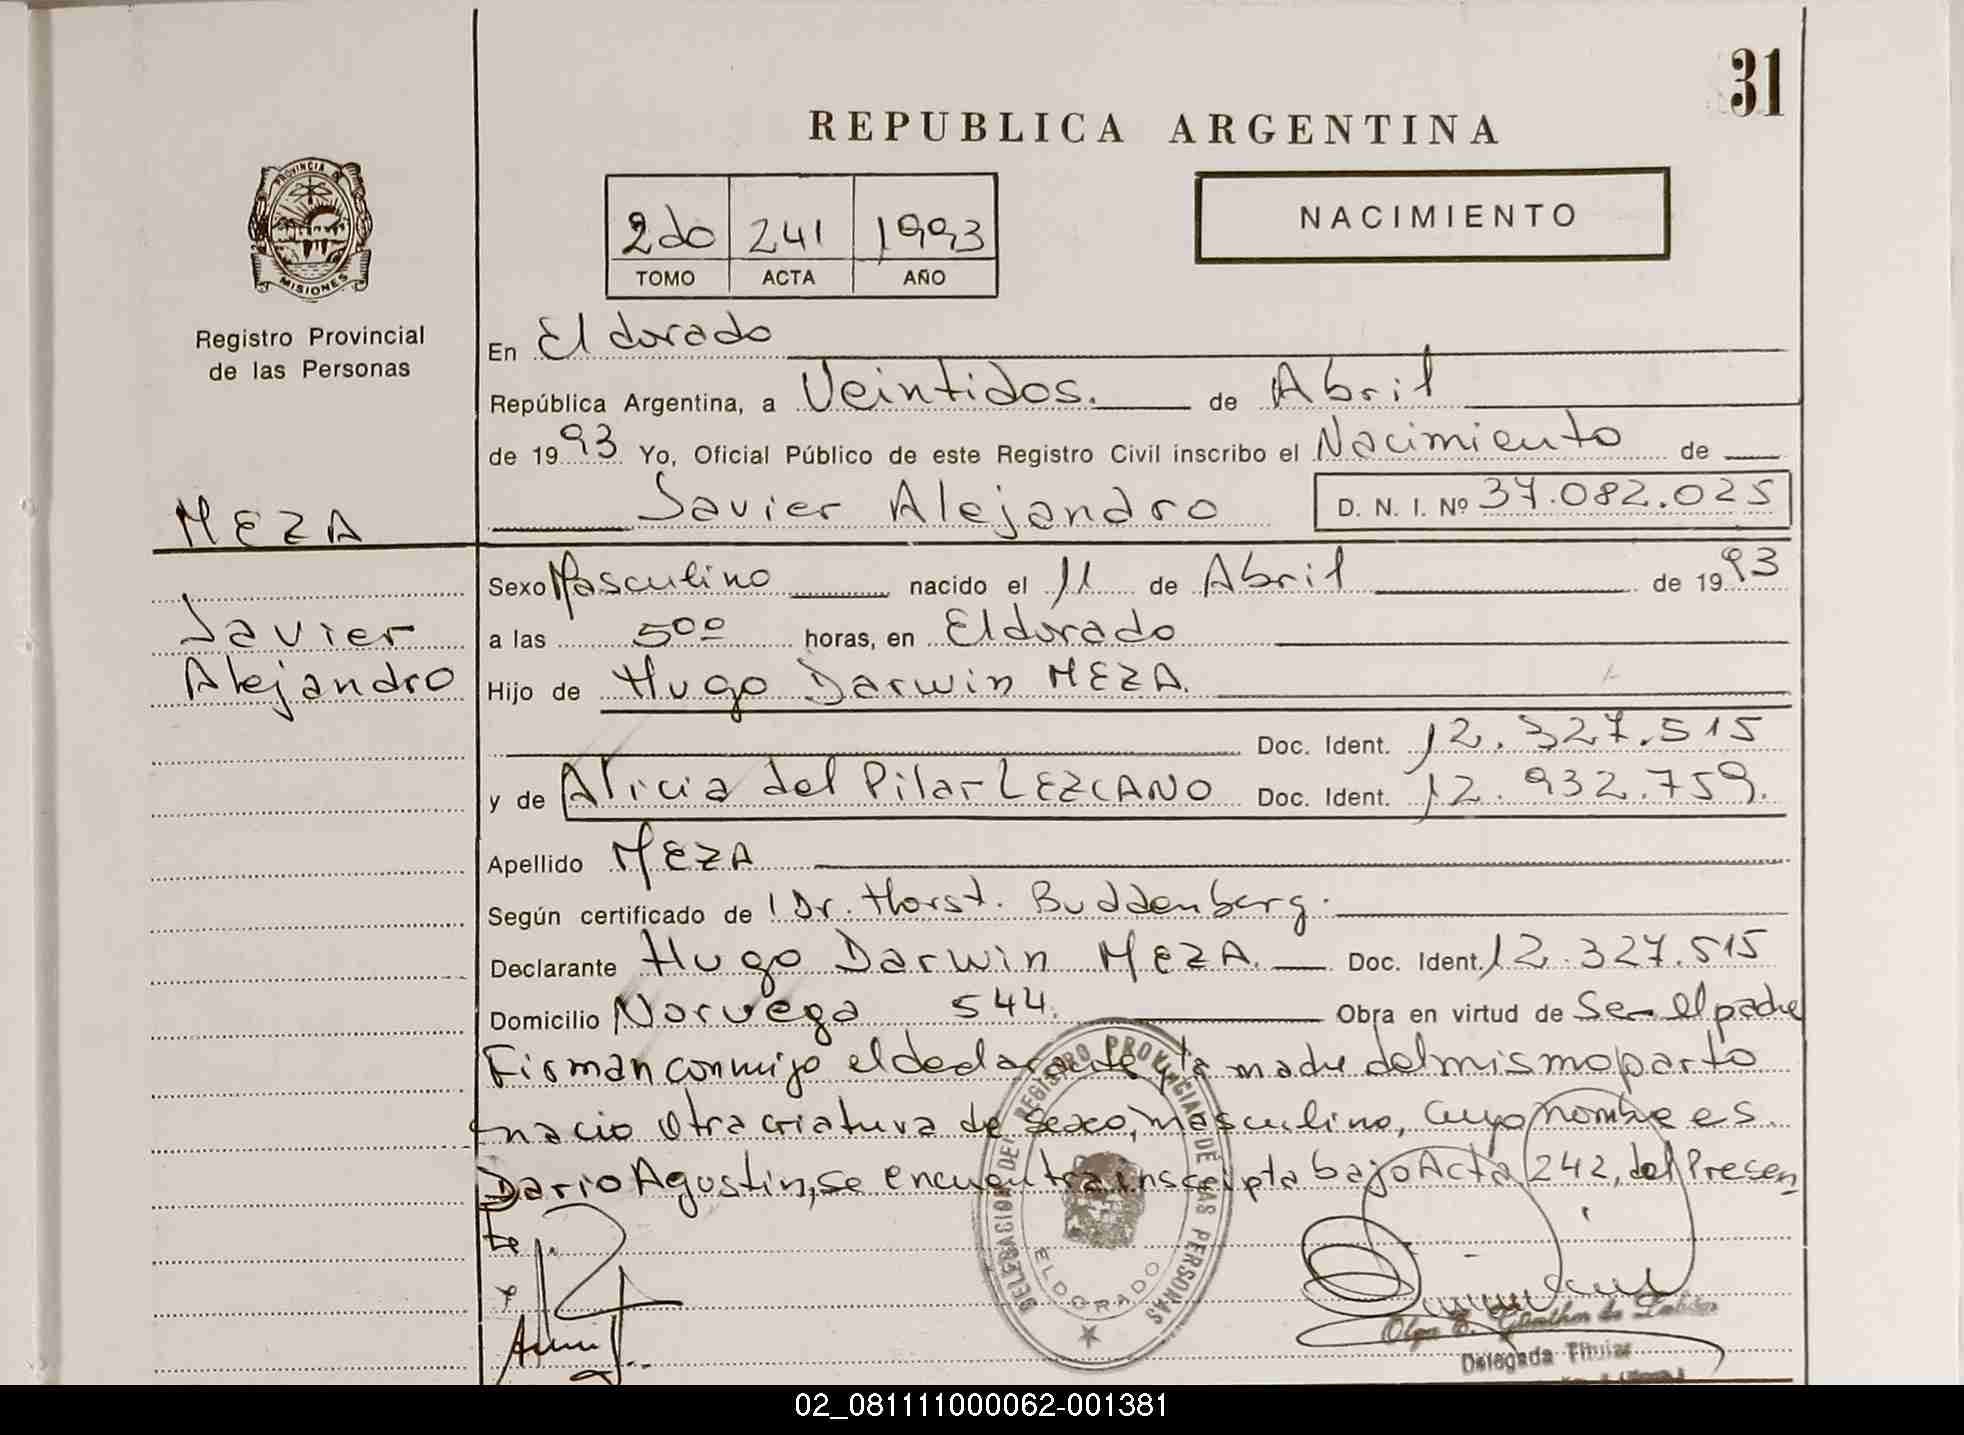 31
REPUBLICA ARGENTINA
PROVINCIA DE
MISIONES
2do 241 1993
TOMO ACTA AÑO
NACIMIENTO
Registro Provincial
de las Personas
En Eldorado
República Argentina, a Veintidos. de Abril
de 1993 Yo, Oficial Público de este Registro Civil inscribo el Nacimiento de
MEZA
Javier Alejandro D. N. I. Nº 37.082.025
Sexo Masculino nacido el 11 de Abril de 1993
Javier
a las 5⁰⁰ horas, en Eldorado
Alejandro
Hijo de Hugo Darwin MEZA.
Doc. Ident. 12.327.515
y de Alicia del Pilar LEZCANO Doc. Ident. 12.932.759.
Apellido MEZA
Según certificado de Dr. Horst. Buddenberg.
Declarante Hugo Darwin MEZA. Doc. Ident. 12.327.515
Domicilio Noruega 544. Obra en virtud de Ser el padre
Firman conmigo el declarante y la madre del mismo parto
nacio otra criatura de sexo, masculino, cuyo nombre es
Dario Agustin, se encuentra inscripta bajo Acta 242, del Presen
te.
DELEGACION DEL REGISTRO PROVINCIAL DE LAS PERSONAS
ELDORADO
Olga E. Günther de
Delegada Titular
02_081111000062-001381